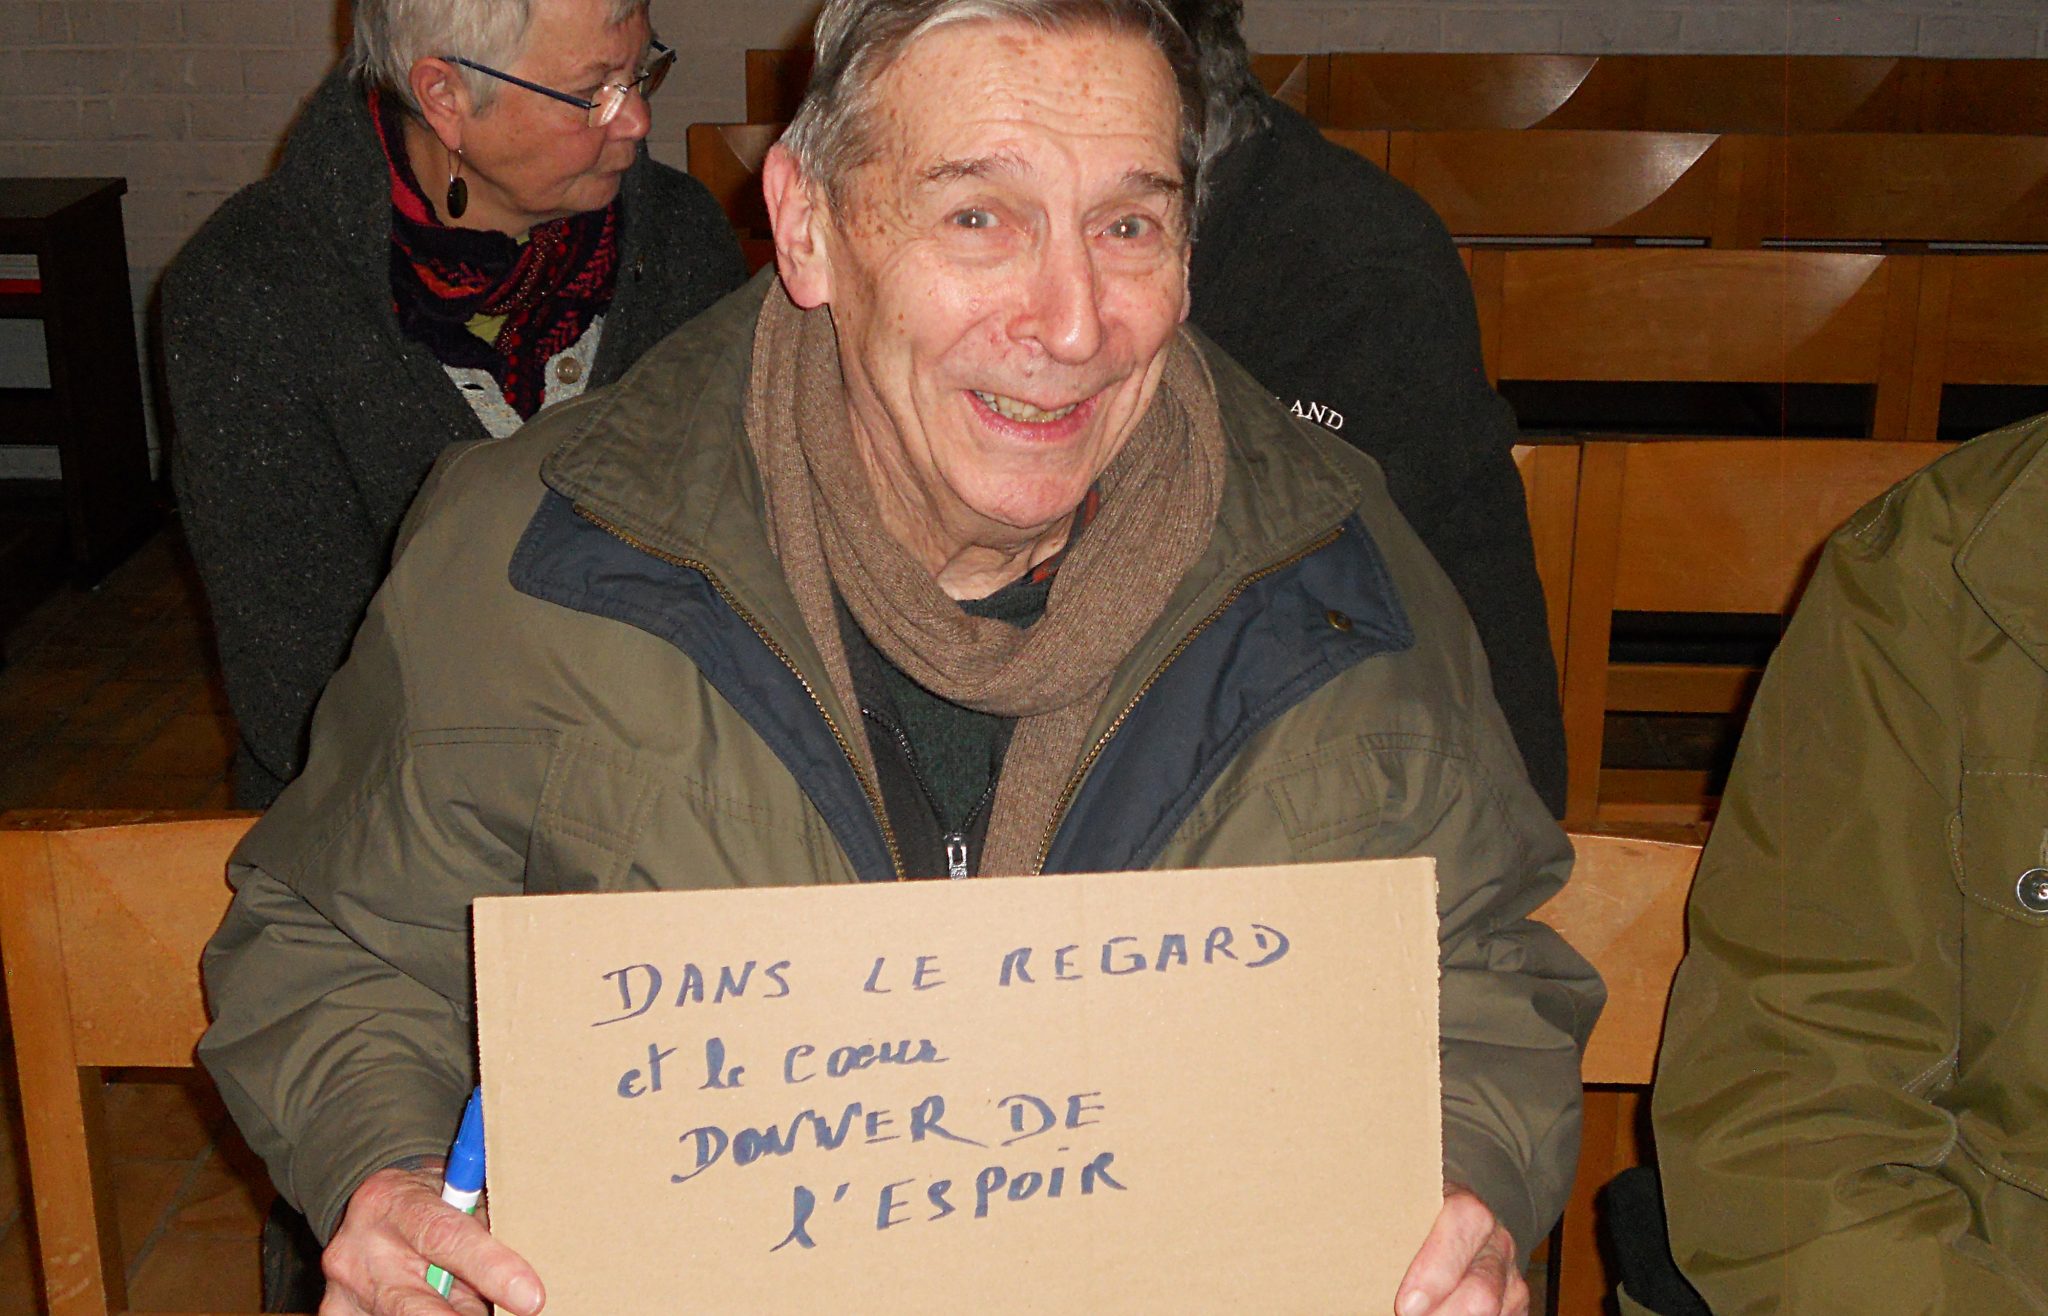 AND
DANS LE REGARD
et le coeur
DONNER DE
l'ESPOIR